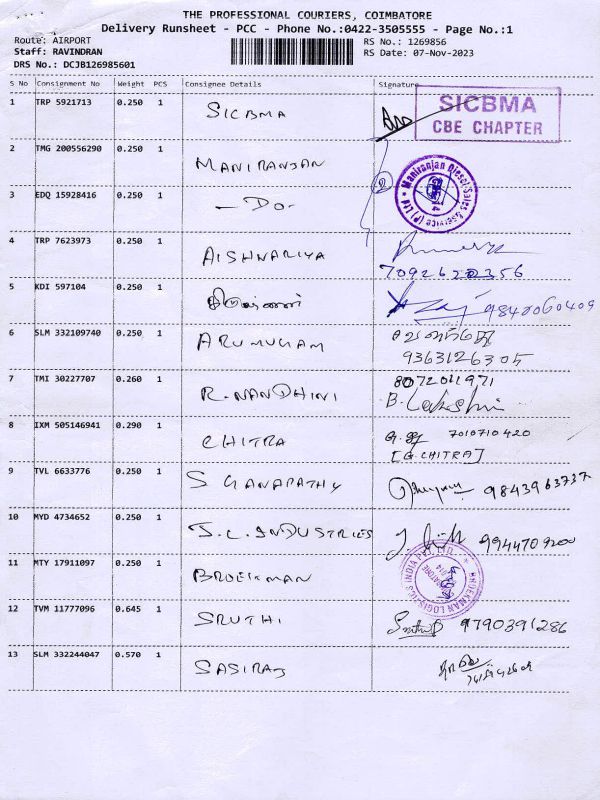 THE PROFESSIONAL COURIERS, COIMBATORE
Delivery Runsheet - PCC - Phone No.:0422-3505555 - Page No.:1
Route: AIRPORT RS No.: 1269856
Staff: RAVINDRAN RS Date: 07-Nov-2023
DRS No.: DCJB126985601
S No Consignment No Weight PCS Consignee Details Signature
1 TRP 5921713 0.250 1 SICBMA
SICBMA
CBE CHAPTER
2 TMG 200556290 0.250 1 MANIRANJAN
Maniranjan Diesel Sales & Service (P) Ltd
3 EDQ 15928416 0.250 1 - DO -
4 TRP 7623973 0.250 1 AISHWARIYA
7092620356
5 KDI 597104 0.250 1
9840060409
6 SLM 332109740 0.250 1 ARUMUGAM
9363126305
7 TMI 30227707 0.260 1 R. NANDHINI 8072011971
B. Lakshmi
8 IXM 505146941 0.290 1 CHITRA 7010710420
[G. CHITRA]
9 TVL 6633776 0.250 1 S GANAPATHY 9843963737
10 MYD 4734652 0.250 1 J.C. INDUSTRIES 9944709200
11 MTY 17911097 0.250 1 BROEKMAN
BROEKMAN LOGISTICS INDIA PVT. LTD.
12 TVM 11777096 0.645 1 SRUTHI 9790391286
13 SLM 332244047 0.570 1 SASIRAJ